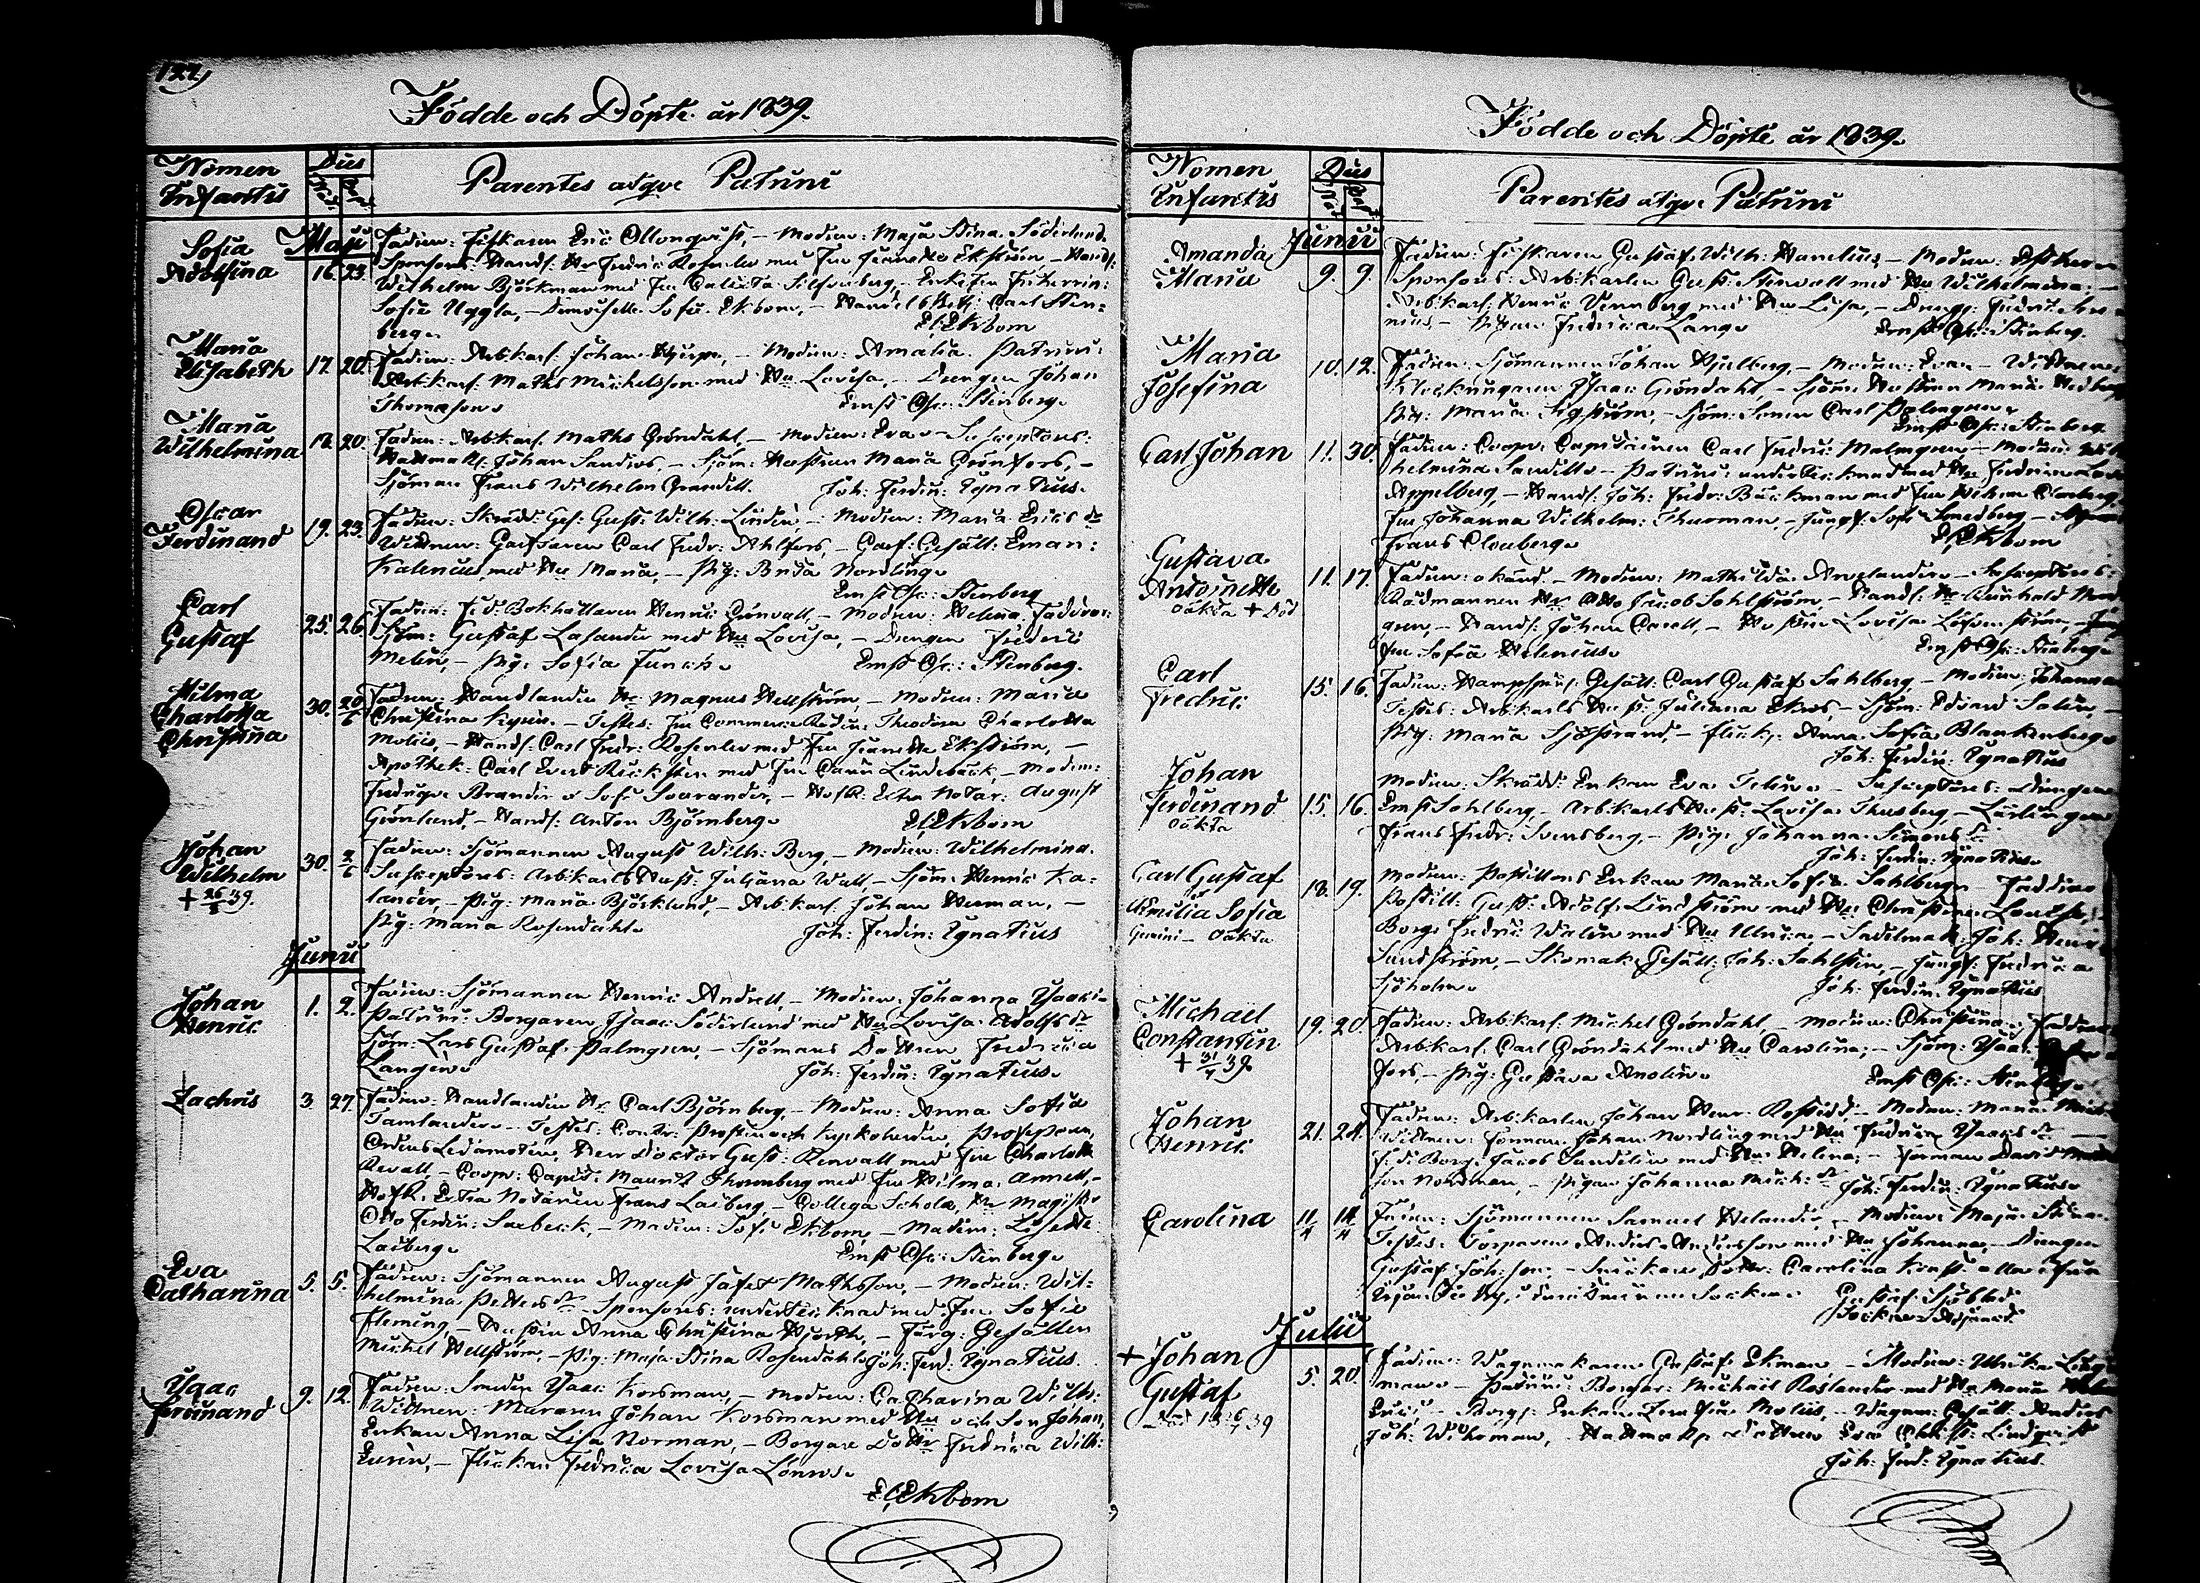 122)
Födde och Döpte år 1839.
Nomen Infantis
Dies
Parentes atqve Patrini
Maji
Sofia Adolfina
16. 23.
Fadren: Fiskaren Eric Ollonqvist, – Modren: Maja Stina Söderlund.
Sponsores: Handl: Hr Fredric Rosenlew med Fru Jeanette Ekström – Handl:
Wilhelm Björkman med Fru Calixta Silfverberg, – Enkefru Friherrin:
Sofie Uggla, – Demoiselle Sofie Ekbom, – Handels Betj: Carl Sten:
berg.
E: Ekbom
Maria Elisabeth
17. 20.
Fadren: Arb:karl: Johan Hjerpe, – Modren: Amalia. Patrini:
Arb:karl: Maths Michelsson med Hu Lovisa, – Drengen Johan
Thomasson.
Ernst Osc: Stenberg.
Maria Wilhelmina
17. 20.
Fadren: Arb:karl: Maths Gröndahl, – Modren: Eva – Susceptores:
Hattmak: Johan Sandros, – Sjöm: Hustrun Maria Grönfors, –
Sjöman Frans Wilhelm Grandell.
Joh: Ferdin: Ignatius.
Oscar Ferdinand
19. 23.
Fadren: Skrädd: Ges: Gust: Wilh: Lindén – Modren: Maria Ericsdr
Wittnen: Garfvaren Carl Fredr: Ahlfors, – Garf: Gesäll: Eman:
Kalenius med Hu Maria, – Pig: Brita Nordling.
Ernst Osc: Stenberg
Carl Gustaf
25. 26.
Fadren: F.d. Bokhållaren Henric Grönvall, – Modren: Helena. Faddrar:
Sjöm: Gustaf Lasander med Hu Lovisa, – Drengen Frederic
Melin, – Pig: Sofia Funck.
Ernst Osc: Stenberg.
Hilma Charlotta Christina
30. 20/6
Fadren: Handlanden Hr Magnus Hellström, – Modren: Maria
Christina – Testes: Fru Commerce Rådin: Theodora Charlotta
Moliis, – Handl: Carl Fredr: Rosenlew med Fru Jeanette Ekström, –
Apothek: Carl Evert Rickstén med Fru Carin Lindebäck – Modem:
Fredriqve Brander & Sofi Savander, – HofR: Extra Notar: August
Grönlund, – Handl: Anton Björnberg.
E: Ekbom
Johan Wilhelm
+ 26/8 39.
30. 2/6
Fadren: Sjömannen August Wilh: Berg, – Modren: Wilhelmina.
Susceptores: Arb:karls Hust: Juliana Wall, – Sjöm: Henric Ka:
lander, – Pig: Maria Björklund, – Arb:karl: Johan Herman, –
Pig: Maria Rosendahl.
Joh: Ferdin: Ignatius
Junii
Johan Henric
1. 2.
Fadren: Sjömannen Henric Andrell, – Modren: Johanna Isacs:
Patrini: Borgaren Isaac Söderlund med Hu Lovisa Adolfsdr
Sjöm: Lars Gustaf Palmgren, – Sjömans Dottren Fredrica
Langén.
Joh: Ferdin: Ignatius.
Zachris
3. 27.
Fadren: Handlanden Hr Carl Björnberg, – Modren: Anna Sofia
Tamlander. – Testes: Contr: Prosten och Kyrkoherden, Professoren,
Ordens Ledamoten, Herr Doktor Gust: Renvall med Fru Charlotta
Revall, – Coopv: Capit: Mauritz Thorenberg med Fru Wilma Annell, –
HofR: Extra Notarien Frans Lasberg, – Collega Scholæ, Hr Magist:
Otto Ferdin: Saxbeck, – Madem: Sofi Ekbom, – Madem: Lisette
Lasberg.
Ernst Osc: Stenberg.
Eva Catharina
5. 5.
Fadren: Sjömannen August Jafet Mathsson, – Modren: Wil:
helmina Pettersdr – Sponsores: undertecknad med Fru Sofie
Fleming, – Hustru Anna Christina Hjorth, – Färg: Gesällen
Michel Hellström, – Pig: Maja Stina Rosendahl.
Joh: Ferd: Ignatius.
Isaac Ferdinand
9. 12.
Fadren: Smeden Isaac Korsman, – Modren: Catharina Wilh:
Wittnen: Muraren Johan Korsman med Hu och Son Johan,
Enkan Anna Lisa Norman, – Borgare Dottr Fredrica Wilh:
Eurén, – Flickan Fredrica Lovisa Lönros.
E: Ekbom
Födde och Döpte år 1839.
Nomen Infantis
Dies
Parentes atqve Patrini
Junii
Amanda Maria
9. 9.
Fadren: Fiskaren Gustaf Wilh: Hanelius, – Modren:
Sponsores: Arb:karlen Gust: Stenvall med Hu Wilhelmina, –
Arb:karl: Henric Vennberg med Hu Lisa, – Dreng:
Pigan Fredrica Lång.
Ernst Osc: Stenberg.
Maria Josefina
10. 12.
Fadren: Sjömannen Johan Hjulberg, – Modren: Eva – Wittnen:
Klockringaren Isaac Gröndahl, – Sjöm: Hustrun Maria
Pig: Maria Sigström, – Sjöm: Sonen Carl Palmgren.
Ernst Osc: Stenberg
Carl Johan
11. 30.
Fadren: Coopv: Capitainen Carl Fredric Malmgren – Modren: Wil:
helmina Sandell. – Patrini: undertecknad med Hu Fredrica Lov:
Appelberg, – Handl: Joh: Fredr: Bäckman med Fru Wilhem: Clouberg,
Fru Johanna Wilhelm: Thurman, – Jungf: Sofi Smedberg –
Frans Clouberg.
E: Ekbom
Gustava Antoinette
oäkta + Död
11. 17.
Fadren: okänd. – Modren: Mathilda Arvelander. – Susceptores:
Rådmannen Hr Otto Jacob Sohlström, – Handl: Hr Reinhold
gren, – Handl: Johan Carell, – Hustru Lovisa Löfvenström, –
Fru Sofia Helenius.
Ernst Osc: Stenberg.
Carl Fredric
15. 16.
Fadren: Hampspin: Gesäll: Carl Gustaf Sahlberg, – Modren: Johanna
Testes: Arb:karls Hust: Juliana Ekros, – Sjöm: Edvard Salin, –
Pig: Maria Sjöstrand, – Flick: Anna Sofia Blankenberg.
Joh: Ferdin: Ignatius
Johan Ferdinand
oäkta
15. 16.
Modren: Skrädd: Enkan Eva Telén. – Susceptores: Drengen
Ernst Sohlberg, – Arb:karls Hust: Lovisa Thusberg, – Lärlingen
Frans Fredr: Svensberg, – Pig: Johanna Simonsdr
Joh: Ferdin: Ignatius.
Carl Gustaf
&
Emilia Sofia
Gemini – oäkta
18. 19.
Modren: Postillons Enkan Maria Sofia Sahlberg. – Faddrar
Postill: Gust: Adolf Lindström med Hu Christina Lovisa, –
Borg: Fredric Walén med Hu Ulrica, – Sadelmak: Joh: Henr:
Sundström, – Skomak: Gesäll: Joh: Sahlstén, – Jungf: Fredrica
Sjöholm.
Joh: Ferdin: Ignatius
Michaël Constantin
+ 31/7 39.
19. 20.
Fadren: Arb:karl: Michel Gröndahl, – Modren: Christina. Faddrar
Arb:karl: Carl Gröndahl med Hu Carolina, – Sjöm: Isaac
fors, – Pig: Gustava Anolin.
Ernst Osc: Stenberg.
Johan Henric
21. 24.
Fadren: Arb:karlen Johan Henr: – Modren: Maria
Wittnen: Forman Johan Nordling med Hu Fredrica Isacsdr –
F.d. Borg: Jacob Sundelin med Hu Helena, – Forman David
son Nordman, – Pigan Johanna Mich:dr
Joh: Ferdin: Ignatius.
Carolina
11/4 14/4
Fadren: Sjömannen Samuel Helander, – Modren: Maja Stina.
Testes: Torparen Anders Andersson med Hu Johanna, – Drengen
Gustaf Joh:son, – Carolina
Socken.
Gustaf Sjöblad
Sockne Adjunct.
Julii
+ Johan Gustaf
Död 13/6 39
5. 20.
Fadren: Vagnmakaren Gustaf Ekman – Modren: Ulrika
man. – Patrini: Borgar: Michaël Roslander med Hu Maria
– Borg: Enkan Moliis, – Vagnm: Gesäll: Anders
Joh: Wikman, – Hattmak: Dottren Eva Christ: Lindqvist
Joh: Ferd: Ignatius.